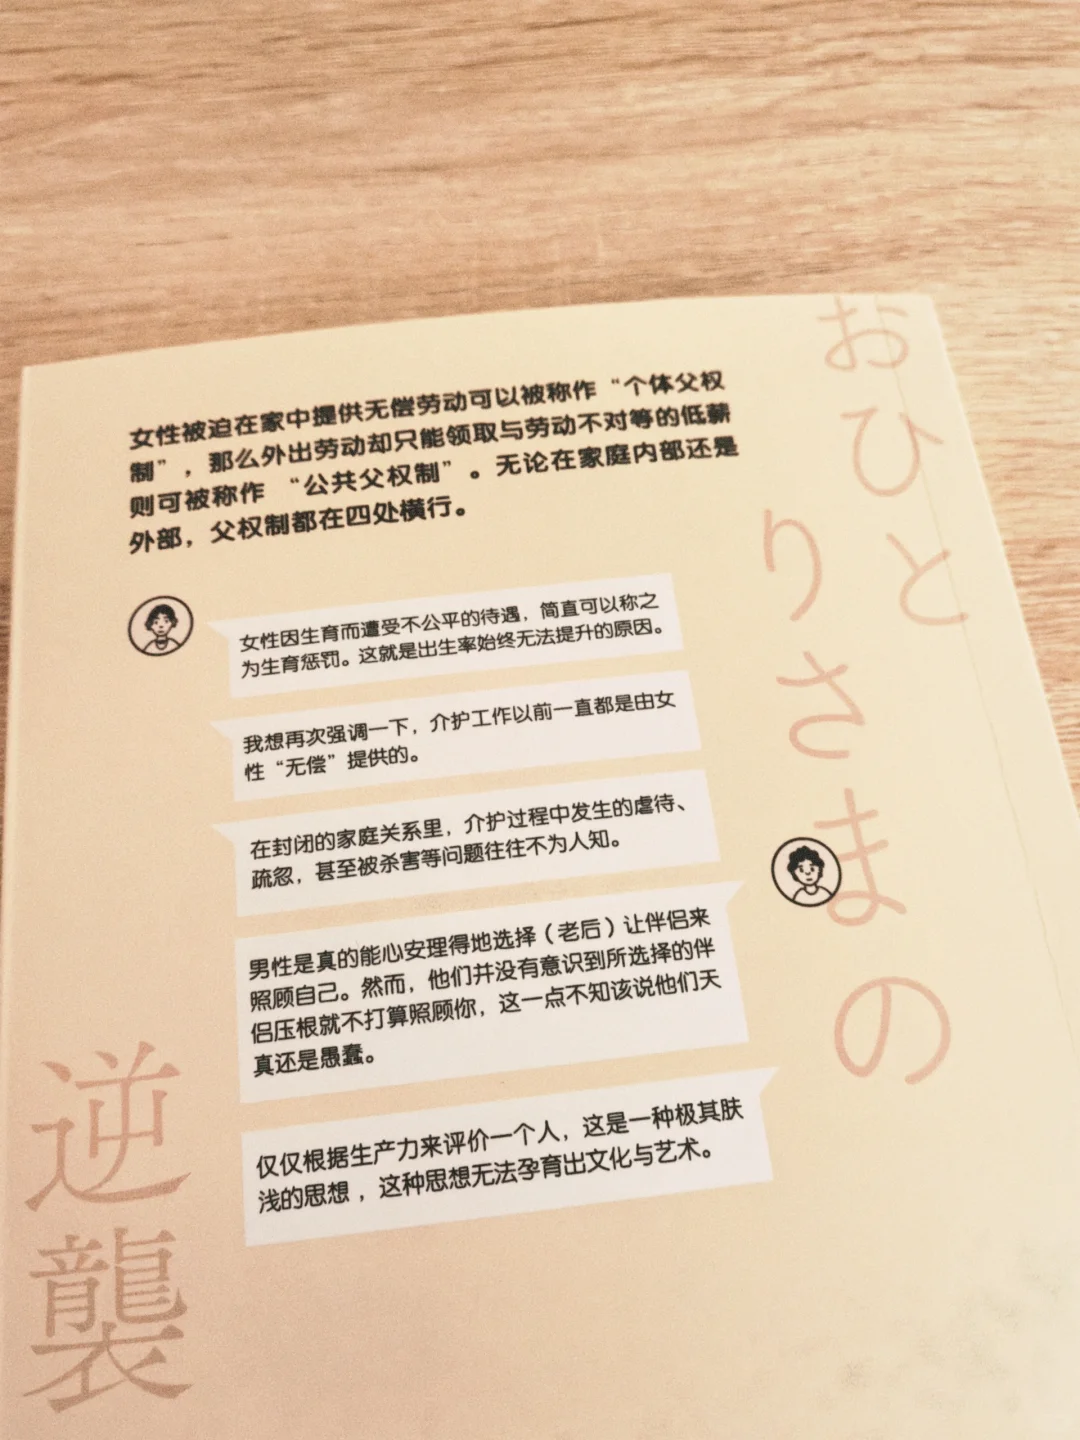 女性被迫在家中提供无偿劳动可以被称作“个体父权
制”，那么外出劳动却只能领取与劳动不对等的低薪
则可被称作 “公共父权制” 。无论在家庭内部还是
外部，父权制都在四处横行。
女性因生育而遭受不公平的待遇，简直可以称之
为生育惩罚。这就是出生率始终无法提升的原因。
我想再次强调一下，介护工作以前一直都是由女
性“无偿”提供的。
在封闭的家庭关系里，介护过程中发生的虐待、
疏忽，甚至被杀害等问题往往不为人知。
男性是真的能心安理得地选择（老后）让伴侣来
照顾自己。然而，他们并没有意识到所选择的伴
侣压根就不打算照顾你，这一点不知该说他们天
真还是愚蠢。
仅仅根据生产力来评价一个人，这是一种极其肤
浅的思想 ，这种思想无法孕育出文化与艺术。
おひと
りさまの
逆襲